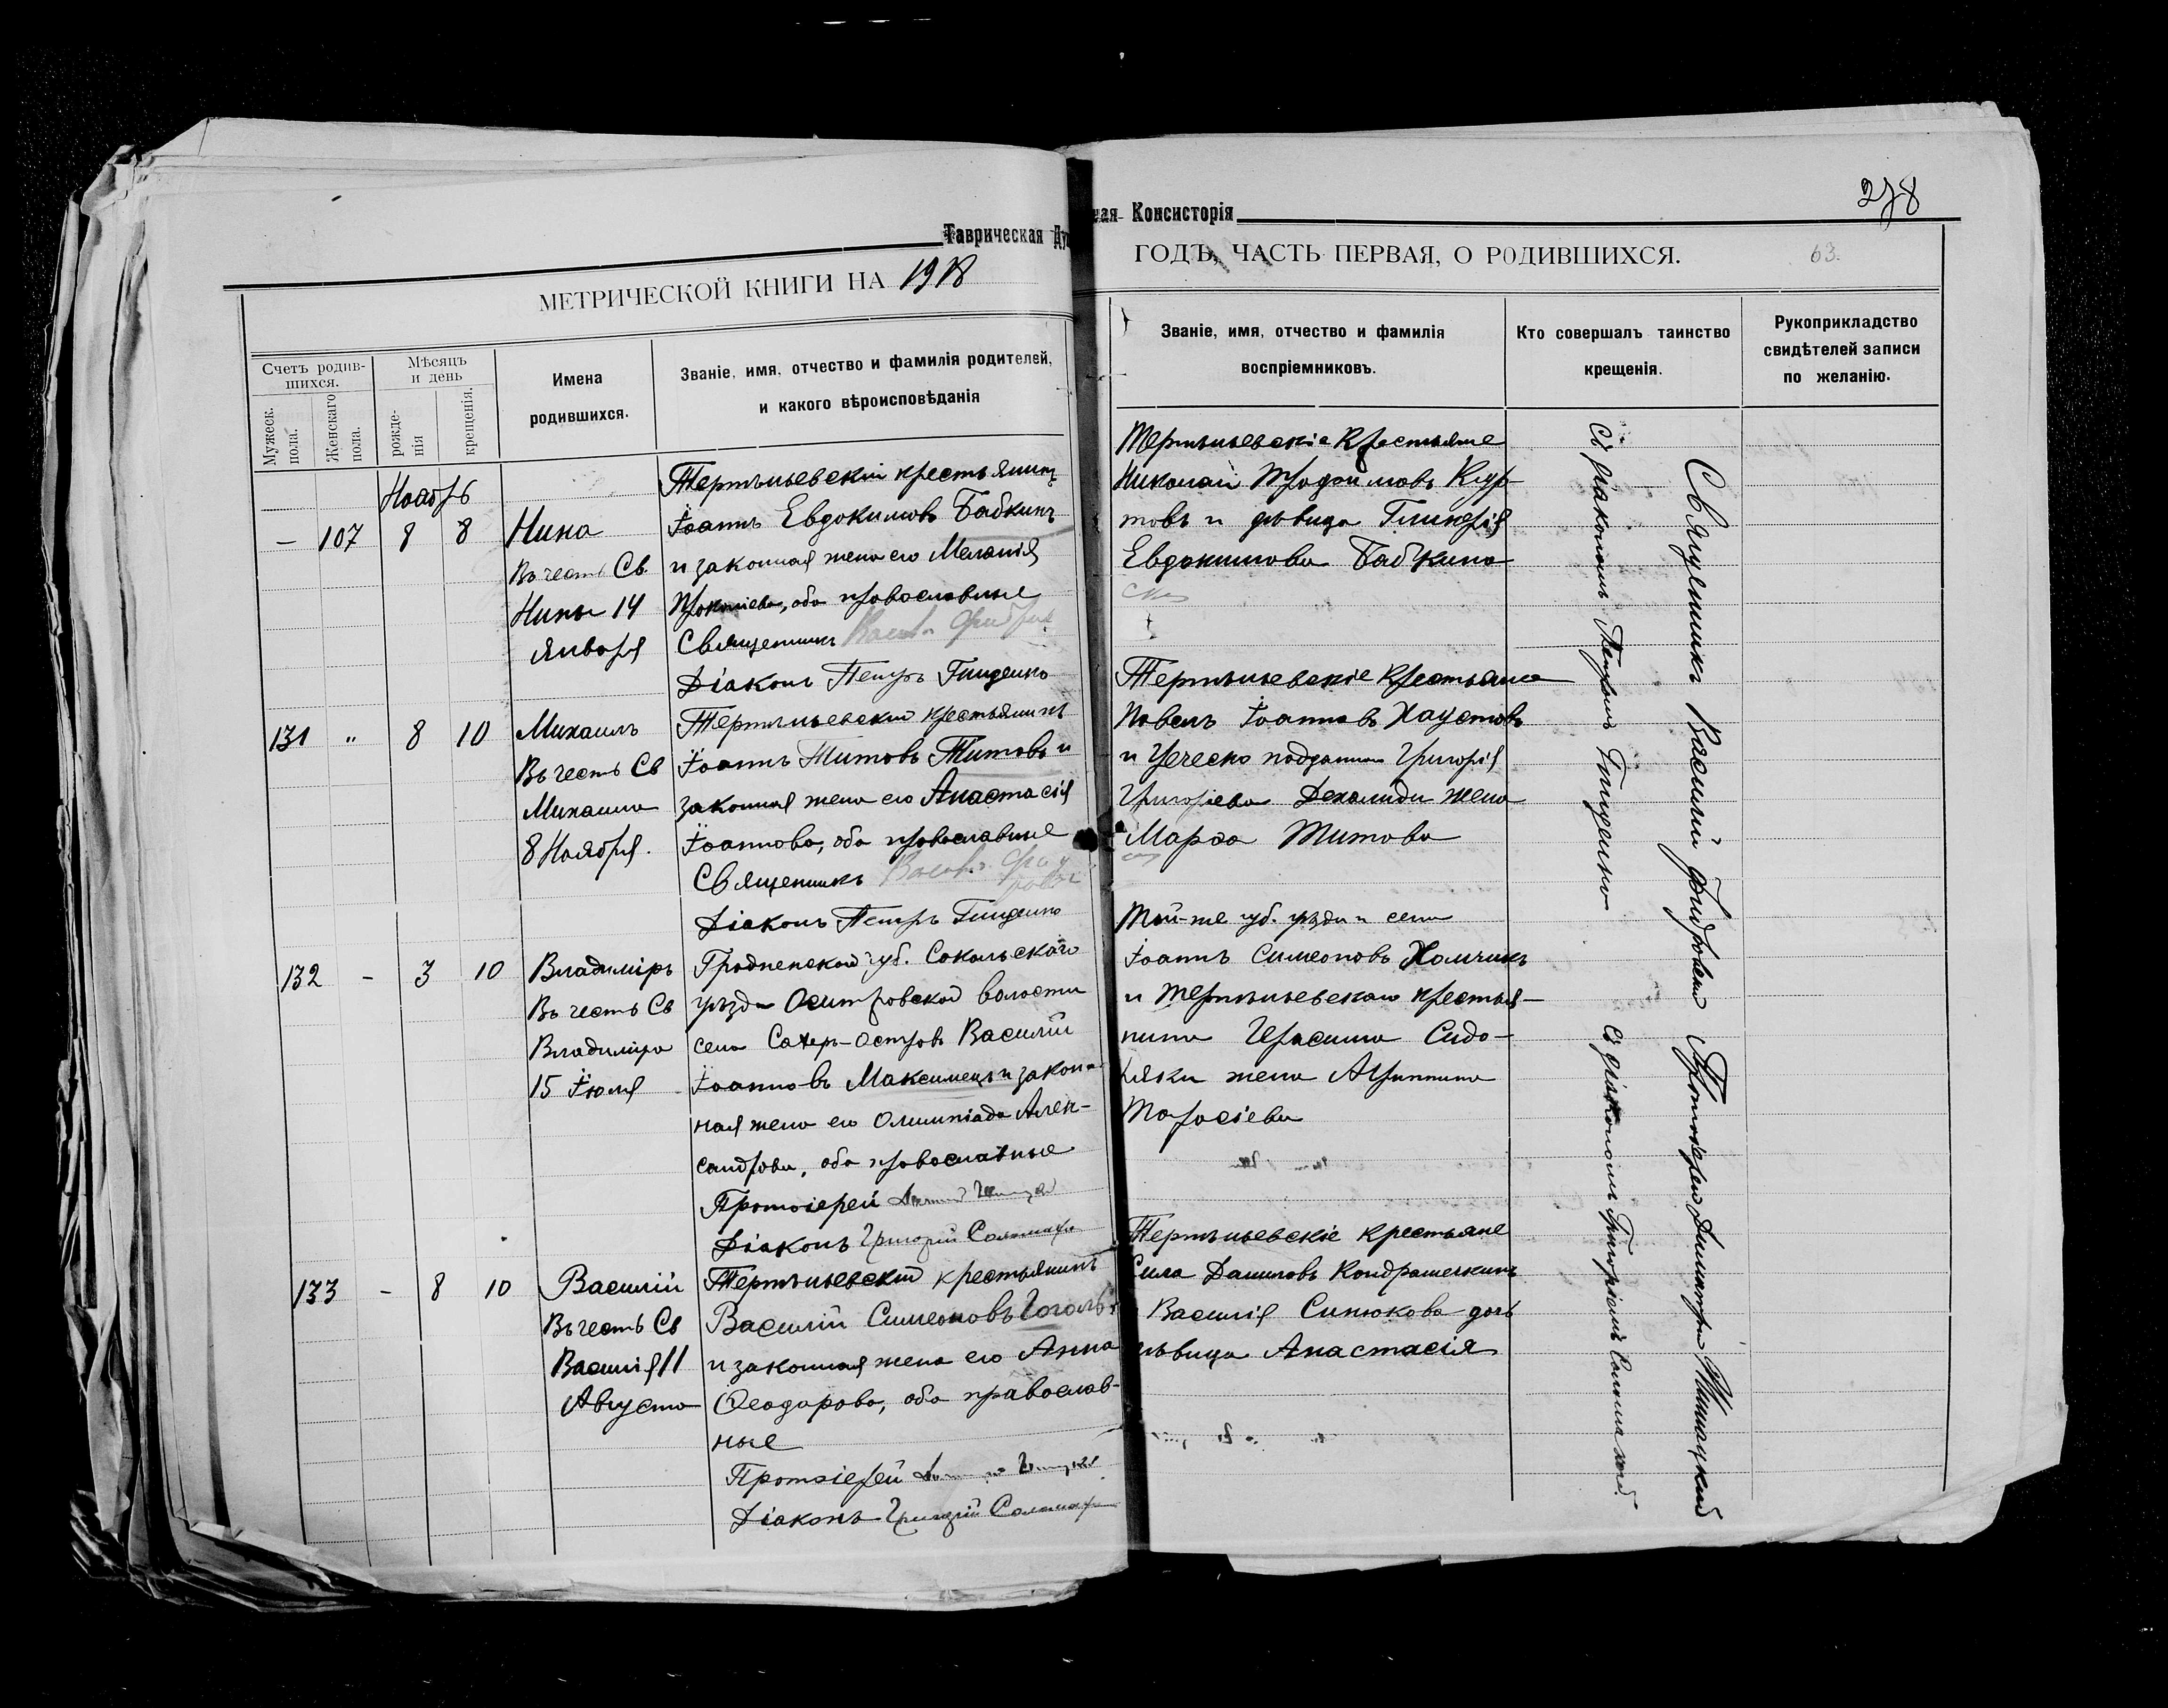 Таврическая Ду
ная Консисторія
278
МЕТРИЧЕСКОЙ КНИГИ НА 1918
ГОДЪ, ЧАСТЬ ПЕРВАЯ, О РОДИВШИХСЯ.
63.
Счетъ родив-
шихся.
Мужеск.
пола.
Женскаго
пола.
Мѣсяцъ
и день
рожде-
нія
крещенія.
Имена
родившихся.
Званіе, имя, отчество и фамилія родителей,
и какого вѣроисповѣданія
Званіе, имя, отчество и фамилія
воспріемниковъ.
Кто совершалъ таинство
крещенія.
Рукоприкладство
свидѣтелей записи
по желанію.
Ноябрь
— 107 8 8
Нина
Въ честь Св.
Нины 14
января
Тертѣньевскій крестьянинъ
Іоаннъ Евдокимовъ Бабкинъ
и законная жена его Меланія
Прокопіева, оба православные
Священникъ
Діаконъ Петръ Гниденко
Тертѣньевскіе крестьяне
Николай Трофимовъ Кур-
товъ и дѣвица Гликерія
Евдокимова Бабкина
131 " 8 10
Михаилъ
Въ честь Св
Михаила
8 Ноября.
Тертѣньевскій крестьянинъ
Іоаннъ Титовъ Титовъ и
законная жена его Анастасія
Іоаннова, оба православные
Священникъ
Діаконъ Петръ Гниденко
Тертѣньевскіе крестьяне
Павелъ Іоанновъ Хаустовъ
и Греческо подданная Григорія
Григоріева Декалиди жена
Марѳа Титова
132 - 3 10
Владиміръ
Въ честь Св
Владиміра
15 Іюля
Гродненской губ. Сокольскаго
уѣзда Островской волости
села Сахер-Островъ Василій
Іоанновъ Максимецъ и закон-
ная жена его Олимпіада Алек-
сандрова, оба православные
Протоіерей
Діаконъ Григорій
Той-же губ. уѣзда и села
Іоаннъ Симеоновъ Хомчикъ
и Тертѣньевскаго крестья-
нина Герасима Сидо-
ляки жена Агриппина
Тарасіева
133 - 8 10
Василій
Въ честь Св
Василія 11
Августа
Тертѣньевскій крестьянинъ
Василій Симеоновъ Гоголь
и законная жена его Анна
Ѳеодорова, оба православ-
ные
Протоіерей
Діаконъ Григорій
Тертѣньевскіе крестьяне
Сила Даниловъ Кондрашечкинъ
Василія Синюкова дочь
дѣвица Анастасія
Священникъ Василій
съ діакономъ Петромъ Гниденко
Протоіерей Димитрій
съ діакономъ Григоріемъ